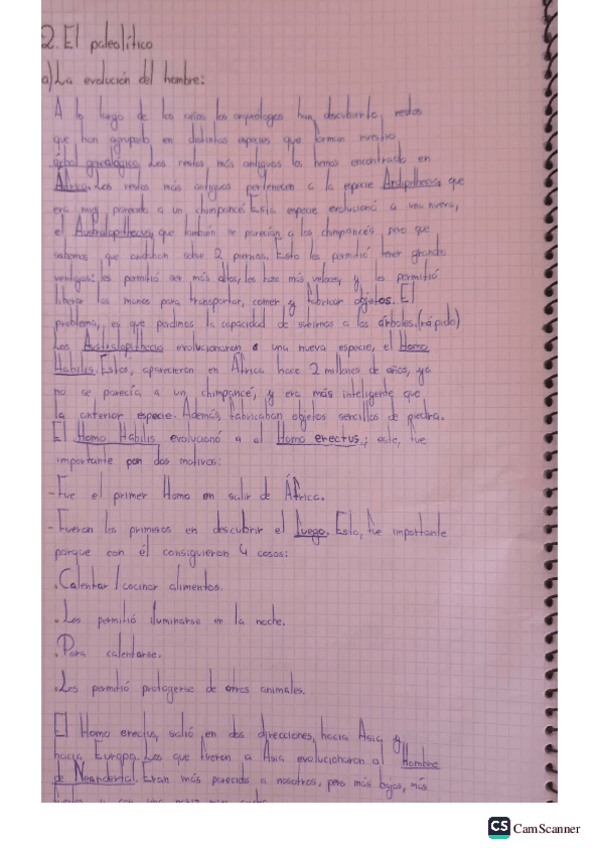 2. El paleolítico
a) La evolución del hombre:
A lo largo de los años los arqueologos han descubierto, restos
que han agrupado en distintas especies que forman nuestro
árbol genealógico. Los restos más antiguos los hemos encontrado en
África. Los restos más antiguos pertenecen a la especie Ardipithecus, que
era muy parecido a un chimpancé. Esta especie evolucionó a una nueva,
el Australopithecus, que también se parecían a los chimpancés, pero que
sabemos que andaban sobre 2 piernas. Esto les permitió tener grande
ventajas: les permitió ser más altos, les hizo más veloces, y les permitió
liberar las manos para transportar, comer y fabricar objetos. El
problema, es que perdimos la capacidad de subirnos a los árboles. (rápido)
Los Australopithecus evolucionaron a una nueva especie, el Homo
Habilis. Estos, aparecieron en África hace 2 millones de años, ya
no se parecía a un chimpancé, y era más inteligente que
la anterior especie. Además, fabricaban objetos sencillos de piedra.
El Homo Habilis evolucionó a el Homo erectus; este, fue
importante por dos motivos:
- Fue el primer Homo en salir de África.
- Fueron los primeros en descubrir el fuego. Esto, fue importante
porque con él consiguieron 4 cosas:
. Calentar / cocinar alimentos.
. Les permitió iluminarse en la noche.
. Para calentarse.
. Les permitió protegerse de otros animales.
El Homo erectus, salió en dos direcciones, hacia Asia y
hacia Europa. Los que fueron a Asia evolucionaron al Hombre
de Neandertal. Eran más parecidos a nosotros, pero más bajos, más
CS CamScanner